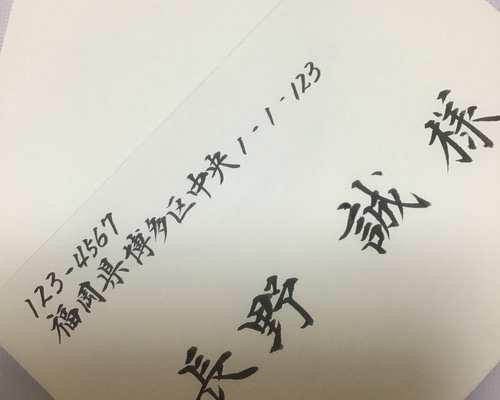 123-4567
福岡県博多区中央1-1-123
長野 誠 様